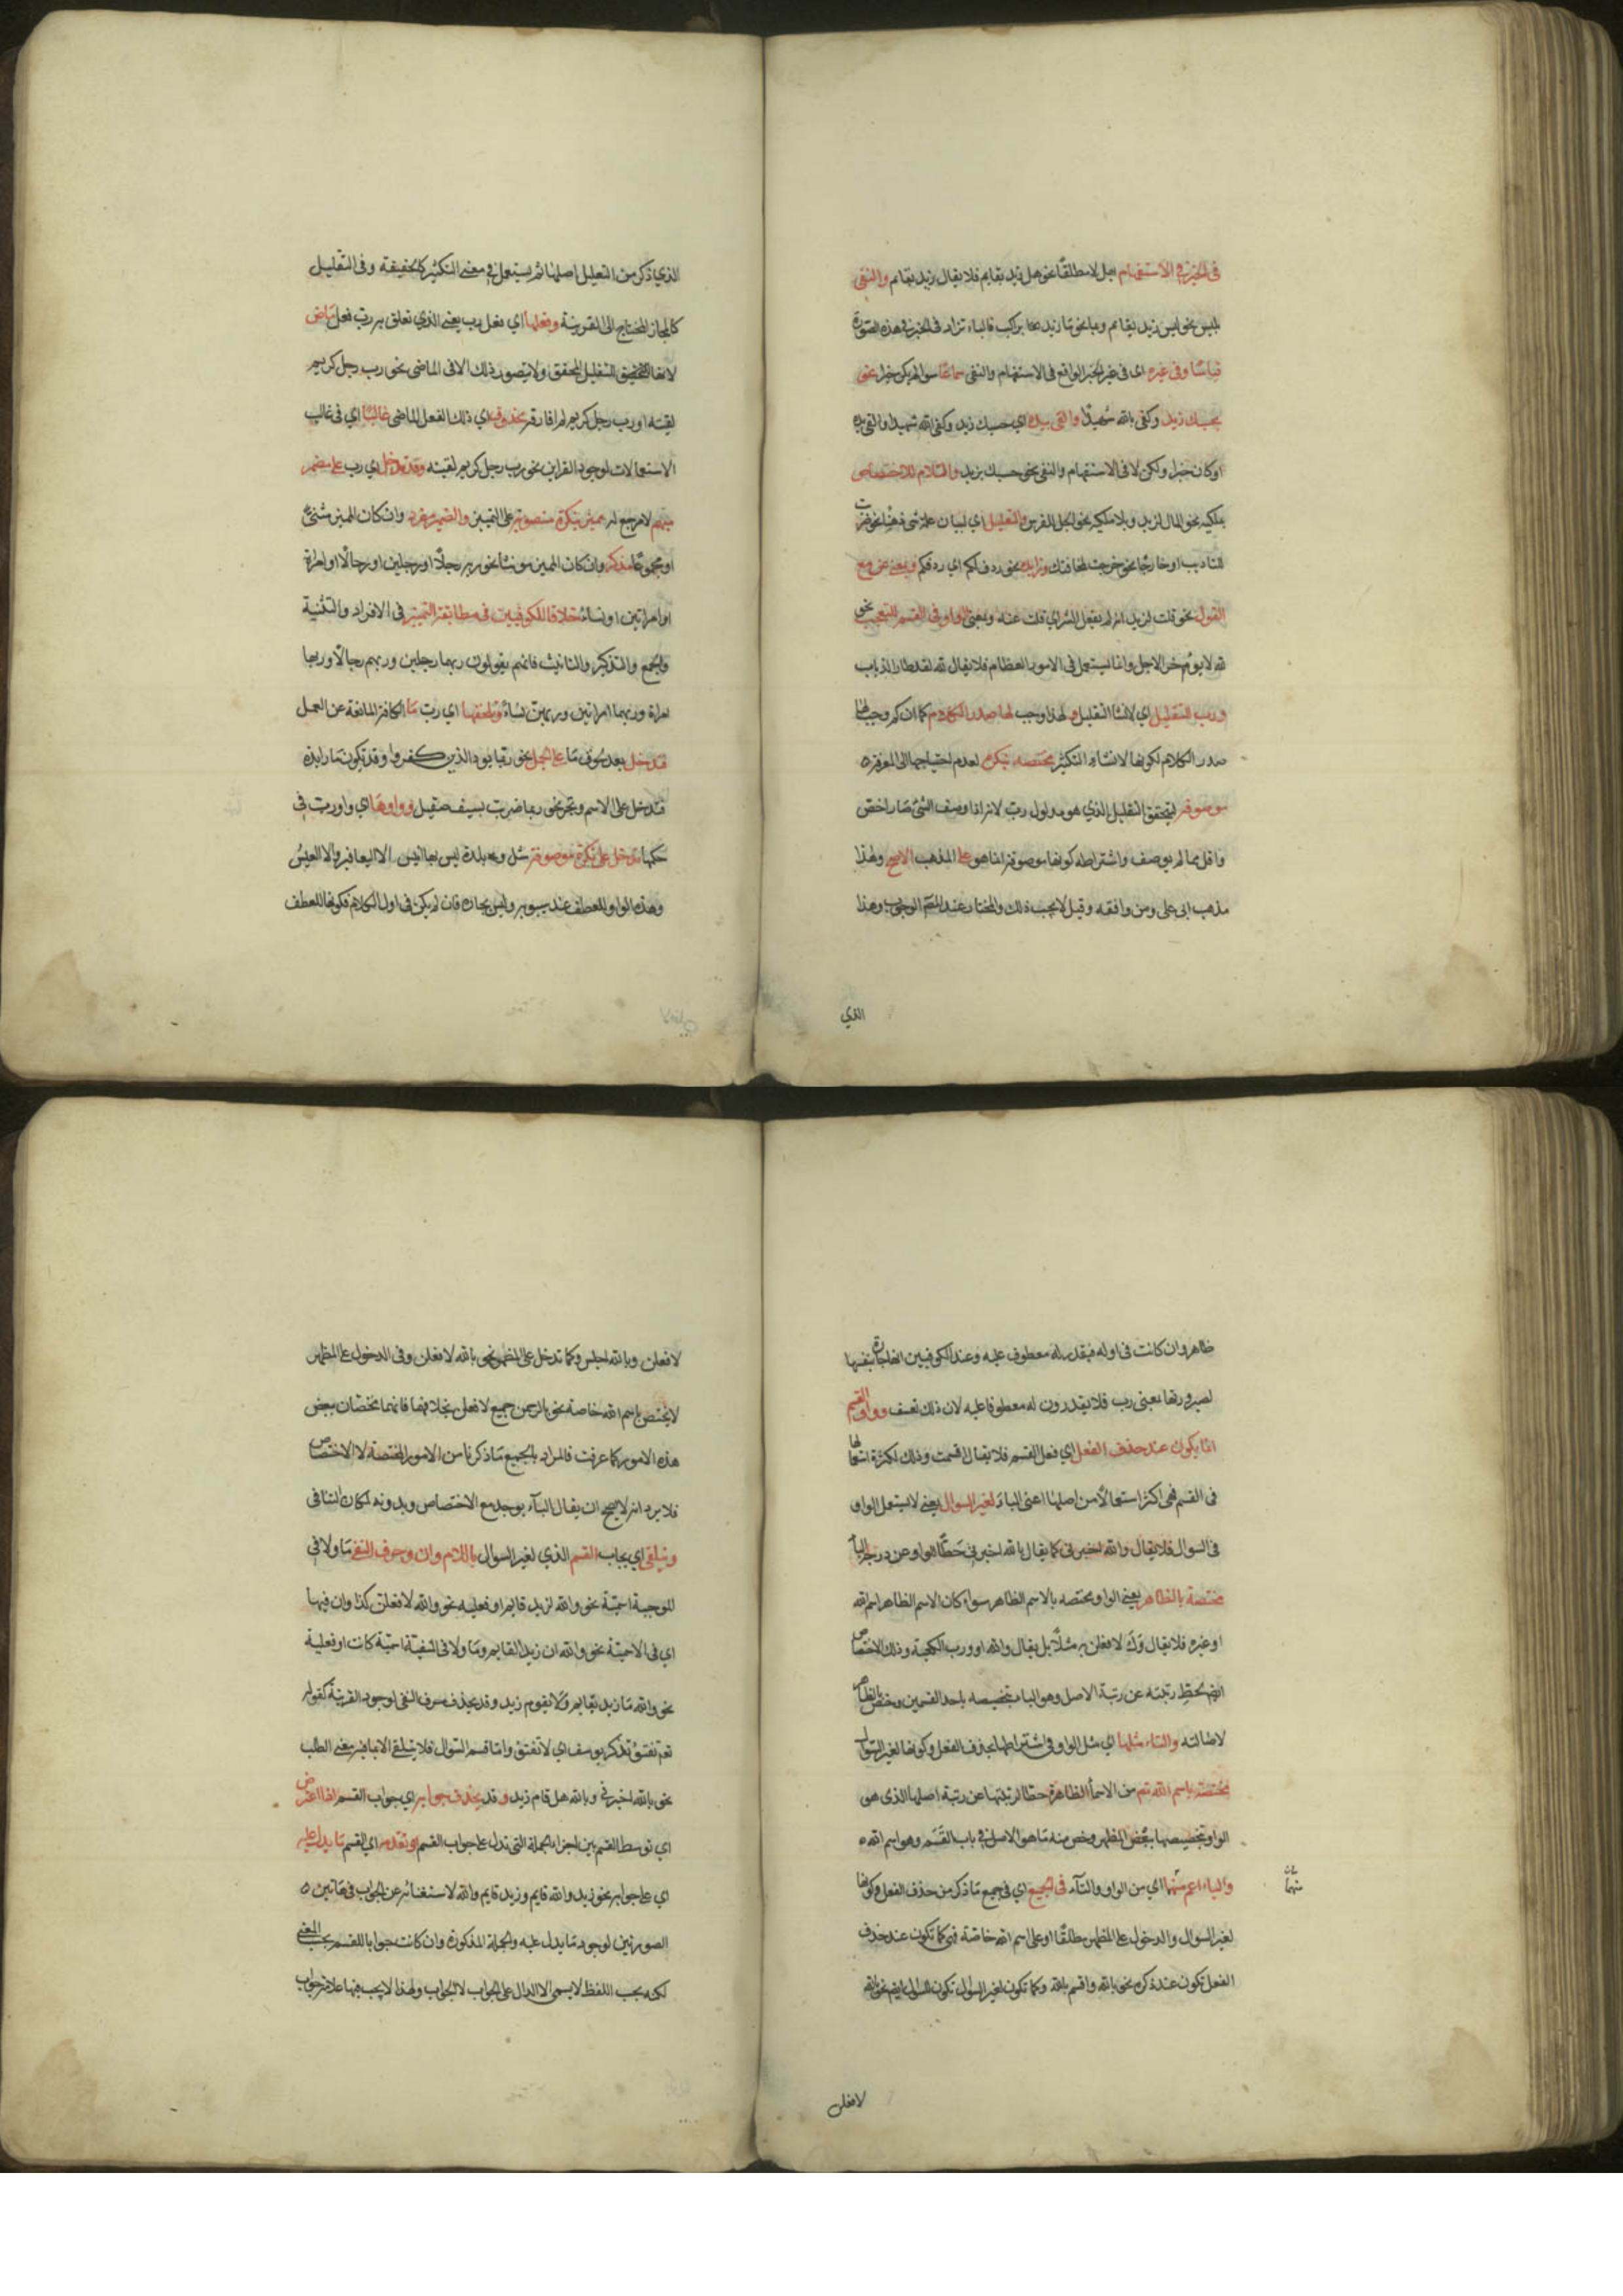 فى الخبر فى الاستفهام بهل لا مطلقا نحو هل زيد بقايم فلا يقال زيد بقايم والنفى
بليس نحو ليس زيد بقايم وبما نحو ما زيد براكب فالباء تزاد فى الخبر فى هذه الصورة
قياسا وفى غيره اى فى غير الخبر الواقع فى الاستفهام والنفى سماعا سواء لم يكن خبرا نحو
بحسبك زيد وكفى بالله شهيدا والقى بيده اي حسبك زيد وكفى الله شهيدا والقى يده
او كان خبرا ولكن لا فى الاستفهام والنفى نحو حسبك بزيد واللام للاختصاص
بملكية نحو المال لزيد وبلا ملكية نحو الجل للفرس والتعليل اي لبيان علة شى ذهنا نحو ضربت
للتاديب او خارجا نحو خرجت لمخافتك وزايدة نحو ردف لكم اي ردفكم وبمعنى عن مع
القول نحو قلت لزيد انه لم يفعل الشر اي قلت عنه وبمعنى الواو فى القسم للتعجب نحو
لله لا يؤخر الاجل وانما يستعمل فى الامور العظام فلا يقال لله لقد طار الذباب
ورب للتقليل اي لانشا التقليل ولهذا وجب لها صدر الكلام كما ان كم وجب لها
صدر الكلام لكونها لانشاء التكثير مختصة بنكرة لعدم احتياجها الى المعرفة
موصوفة ليتحقق التقليل الذي هو مدلول رب لانه اذا وصف الشئ صار اخص
واقل مما لم يوصف واشتراط كونها موصوفة انما هو على المذهب الاصح وهذا
مذهب ابى على ومن وافقه وقيل لا يجب ذلك والمختار عند المصنف الوجوب وهذا
الذي
الذي ذكر من التعليل اصلها ثم يستعمل فى معنى التكثير كالحقيقة وفى التقليل
كالمجاز المحتاج الى القرينة وفعلها اي فعل رب يعنى الذي تعلق به رب فعل ماض
لانها لتحقيق التقليل المحقق ولا يتصور ذلك الا فى الماضى نحو رب رجل كريم
لقيته او رب رجل كريم لم افارقه محذوف اي ذلك الفعل الماضى غالبا اي فى غالب
الاستعمالات لوجود القراين نحو رب رجل كريم لقيته وقد تدخل اي رب على مضمر
مبهم لا مرجع له مميز بنكرة منصوبة على التمييز والضمير مفرد وان كان المميز مثنى
او مجموعا مذكر وان كان المميز مونثا نحو ربه رجلا او رجلين او رجالا او امراة
او امراتين او نساء خلافا للكوفيين فى مطابقة التمييز فى الافراد والتثنية
والجمع والتذكير والتانيث فانهم يقولون ربهما رجلين وربهم رجالا وربها
امراة وربهما امراتين وربهن نساء وتلحقها اي رب ما الكافة المانعة عن العمل
فتدخل بعد لحوق ما على الجمل نحو ربما يود الذين كفروا وقد تكون ما زايدة
فتدخل على الاسم وتجر نحو ربما ضربت بسيف صقيل وواوها اي واو رب فى
حكمها تدخل على نكرة موصوفة مثل وبلدة ليس بها انيس الا اليعافير والا العيس
وهذه الواو للعطف عند سيبويه وليس بجارة فان لم يكن فى اول الكلام فكونها للعطف
ظاهر وان كانت فى اوله فيقدر له معطوف عليه وعند الكوفيين انها جارة بنفسها
لصيرورتها بمعنى رب فلا يقدرون له معطوفا عليه لان ذلك تعسف وواو القسم
انما يكون عند حذف الفعل اي فعل القسم فلا يقال اقسمت وذلك لكثرة استعمالها
فى القسم فهى اكثر استعمالا من اصلها اعنى الباء لغير السوال يعنى لا يستعمل الواو
فى السوال فلا يقال والله اخبرنى كما يقال بالله اخبرنى حطا للواو عن درجة الباء
مختصة بالظاهر يعنى الواو مختصة بالاسم الظاهر سواء كان الاسم الظاهر اسم الله
او غيره فلا يقال وك لافعلن مثلا بل يقال والله او ورب الكعبة وذلك الاختصاص
ايضا لحط رتبته عن رتبة الاصل وهو الباء بتخصيصه باحد القسمين وخص بالظاهر
لاصالته والتاء مثلها اي مثل الواو فى اشتراطها بحذف الفعل وكونها لغير السوال
مختصة باسم الله تعم من الاسماء الظاهرة حطا لرتبتها عن رتبة اصلها الذى هو
الواو بتخصيصها ببعض المظهر وخص منه ما هو الاصل فى باب القسم وهو اسم الله
والباء اعم منهما اي من الواو والتآء فى الجميع اي فى جميع ما ذكر من حذف الفعل وكونها
لغير السوال والدخول على المظهر مطلقا او على اسم الله خاصة فهى كما تكون عند حذف
الفعل تكون عند ذكره نحو بالله واقسم بالله وكما تكون لغير السوال تكون للسوال ايضا نحو بالله
منهما
لافعلن
لافعلن وبالله اجلس وكما تدخل على المظهر نحو بالله لافعلن وفى الدخول على المظهر
لا يختص باسم الله خاصة نحو بالرحمن جميع لافعلن بخلافهما فانهما مختصان ببعض
هذه الامور كما عرفت فالمراد بالجميع ما ذكرنا من الامور المختصة لا الاختصاص
فلا يرد انه لا يصح ان يقال الباء يوجد مع الاختصاص وبدونه لمكان التنافى
ويتلقى اي يجاب القسم الذي لغير السوال باللام وان وحرف النفى ما ولا فى
الموجبة اسمية نحو والله لزيد قايم او فعلية نحو والله لافعلن كذا وان فيها
اي فى الاسمية نحو والله ان زيدا لقايم وما ولا فى المنفية اسمية كانت او فعلية
نحو والله ما زيد بقايم ولا يقوم زيد وقد يحذف حرف النفى لوجود القرينة كقوله
تعم تفتؤ تذكر يوسف اي لا تفتؤ واما قسم السوال فلا يتلقى الا بما فيه معنى الطلب
نحو بالله اخبرنى وبالله هل قام زيد وقد يحذف جوابه اي جواب القسم اذا اعترض
اي توسط القسم بين اجزاء الجملة التى تدل على جواب القسم او تقدمه اي القسم ما يدل عليه
اي على جوابه نحو زيد والله قايم وزيد قايم والله لاستغنائه عن الجواب فى هاتين
الصورتين لوجود ما يدل عليه والجملة المذكورة وان كانت جوابا للقسم بحسب المعنى
لكنه بحسب اللفظ لا يسمى الا الدال على الجواب لا الجواب ولهذا لا يجب فيها علامة جواب